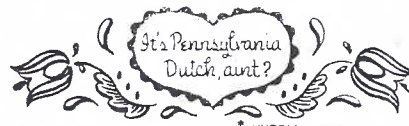 It's Pennsylvania
Dutch, aunt?